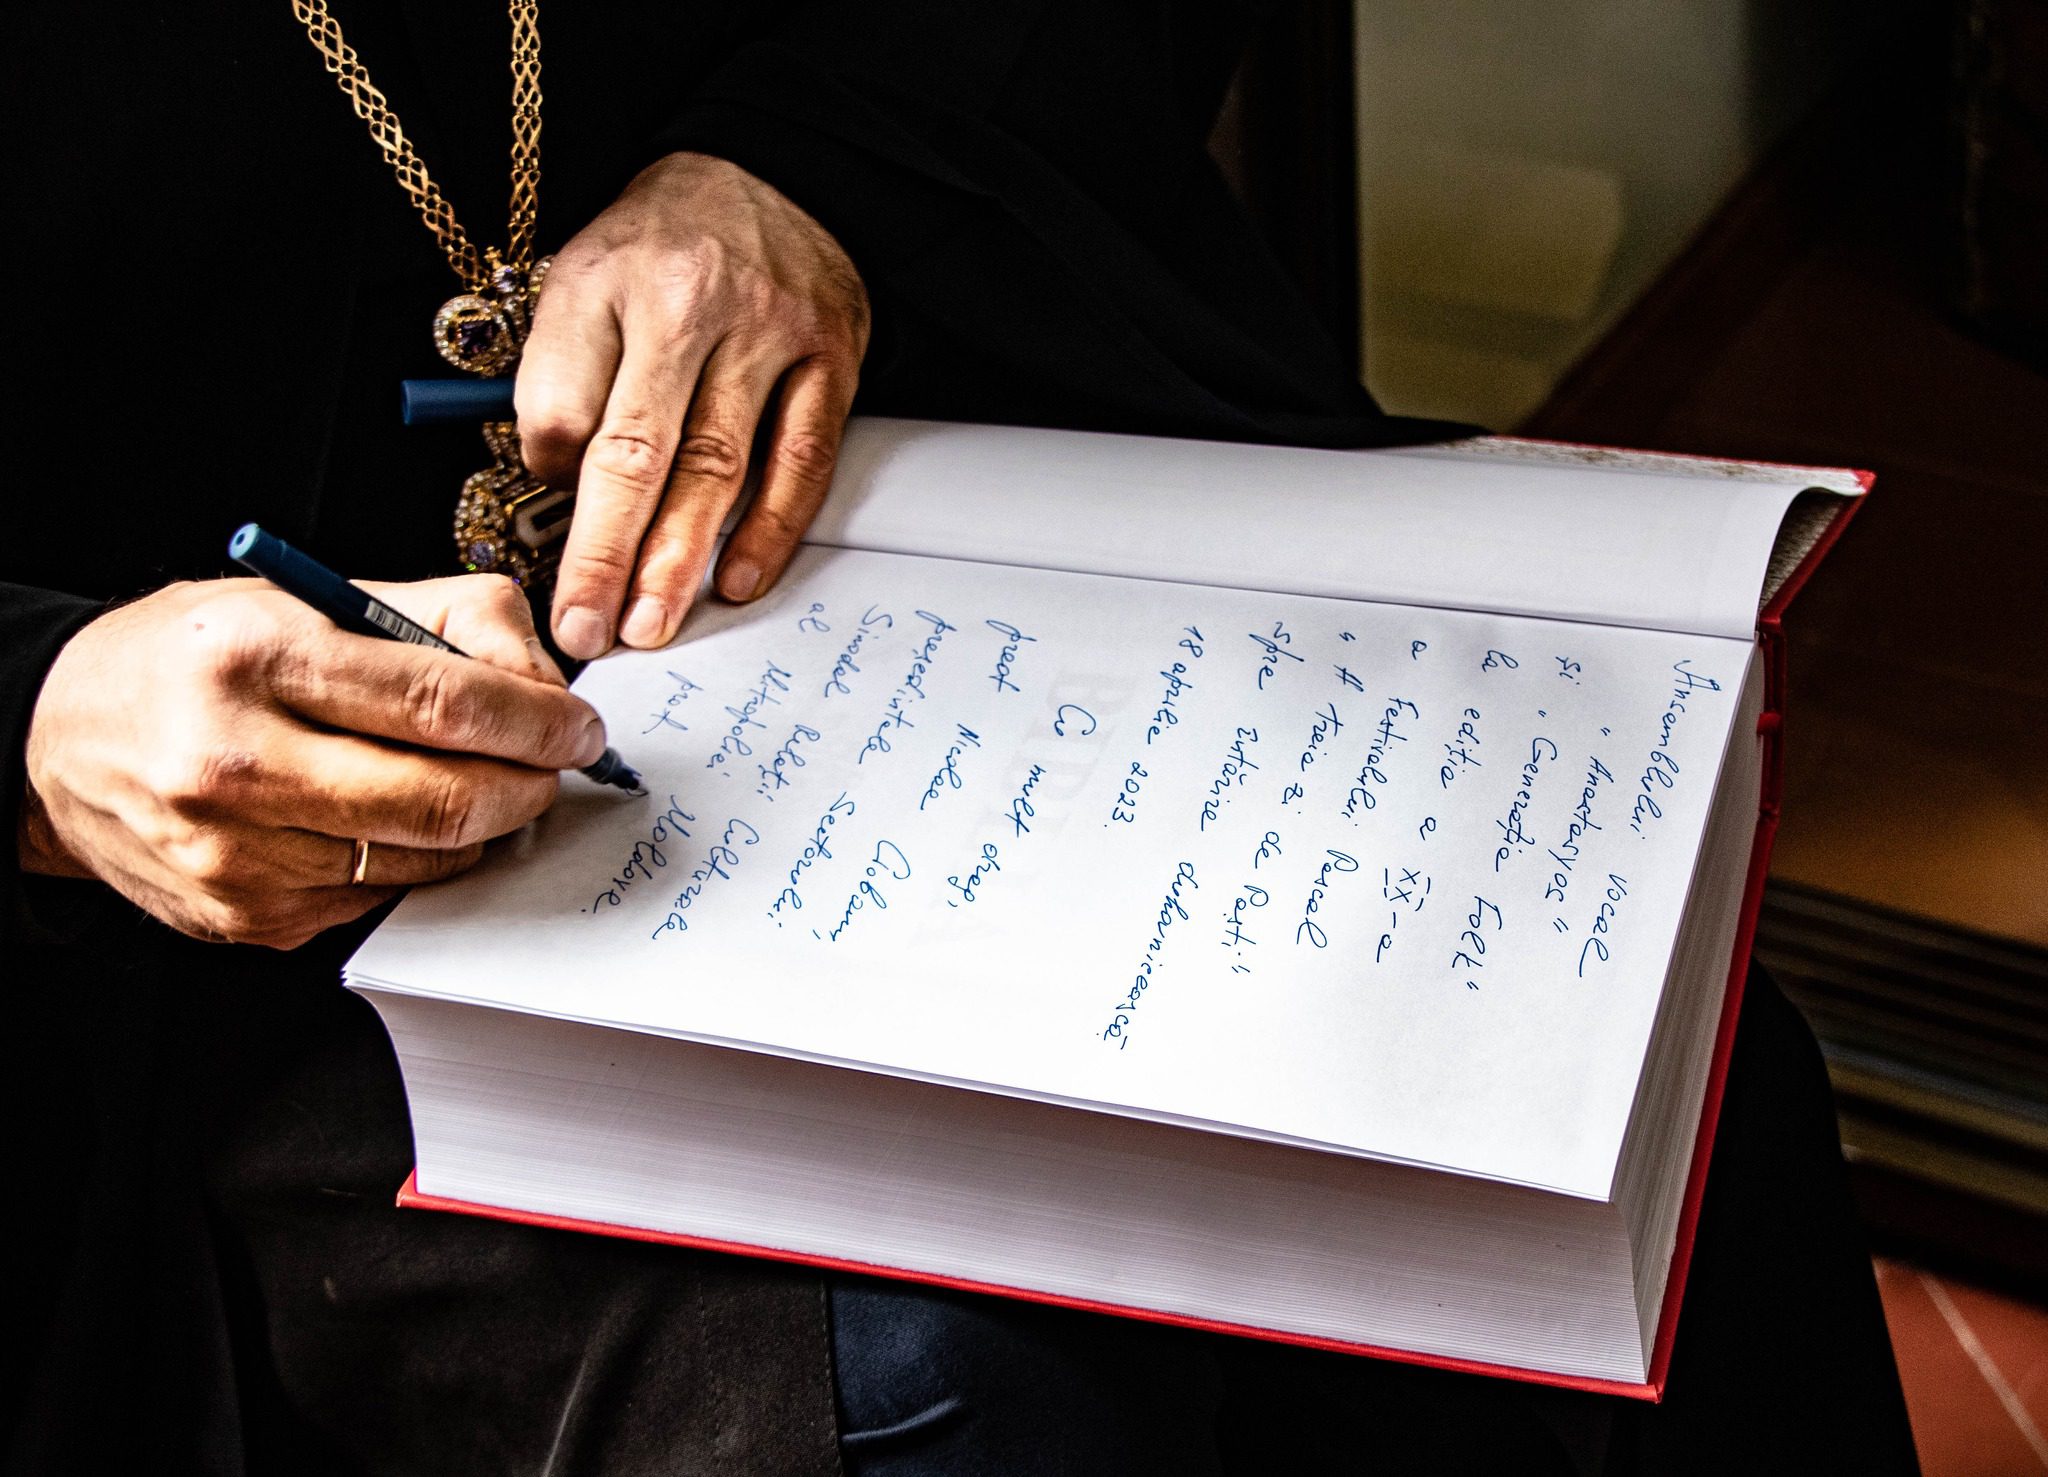 Ansamblului vocal
"Anastasyos"
și "Generația Folk"
la ediția a XX-a
a Festivalului Pascal
"A treia zi de Paști."
Spre întărire duhovnicească
18 aprilie 2023.
Cu mult drag,
preot Nicolae Ciobanu,
președintele Sectorului
Sinodal Relații Culturale
al Mitropoliei Moldovei.
prot